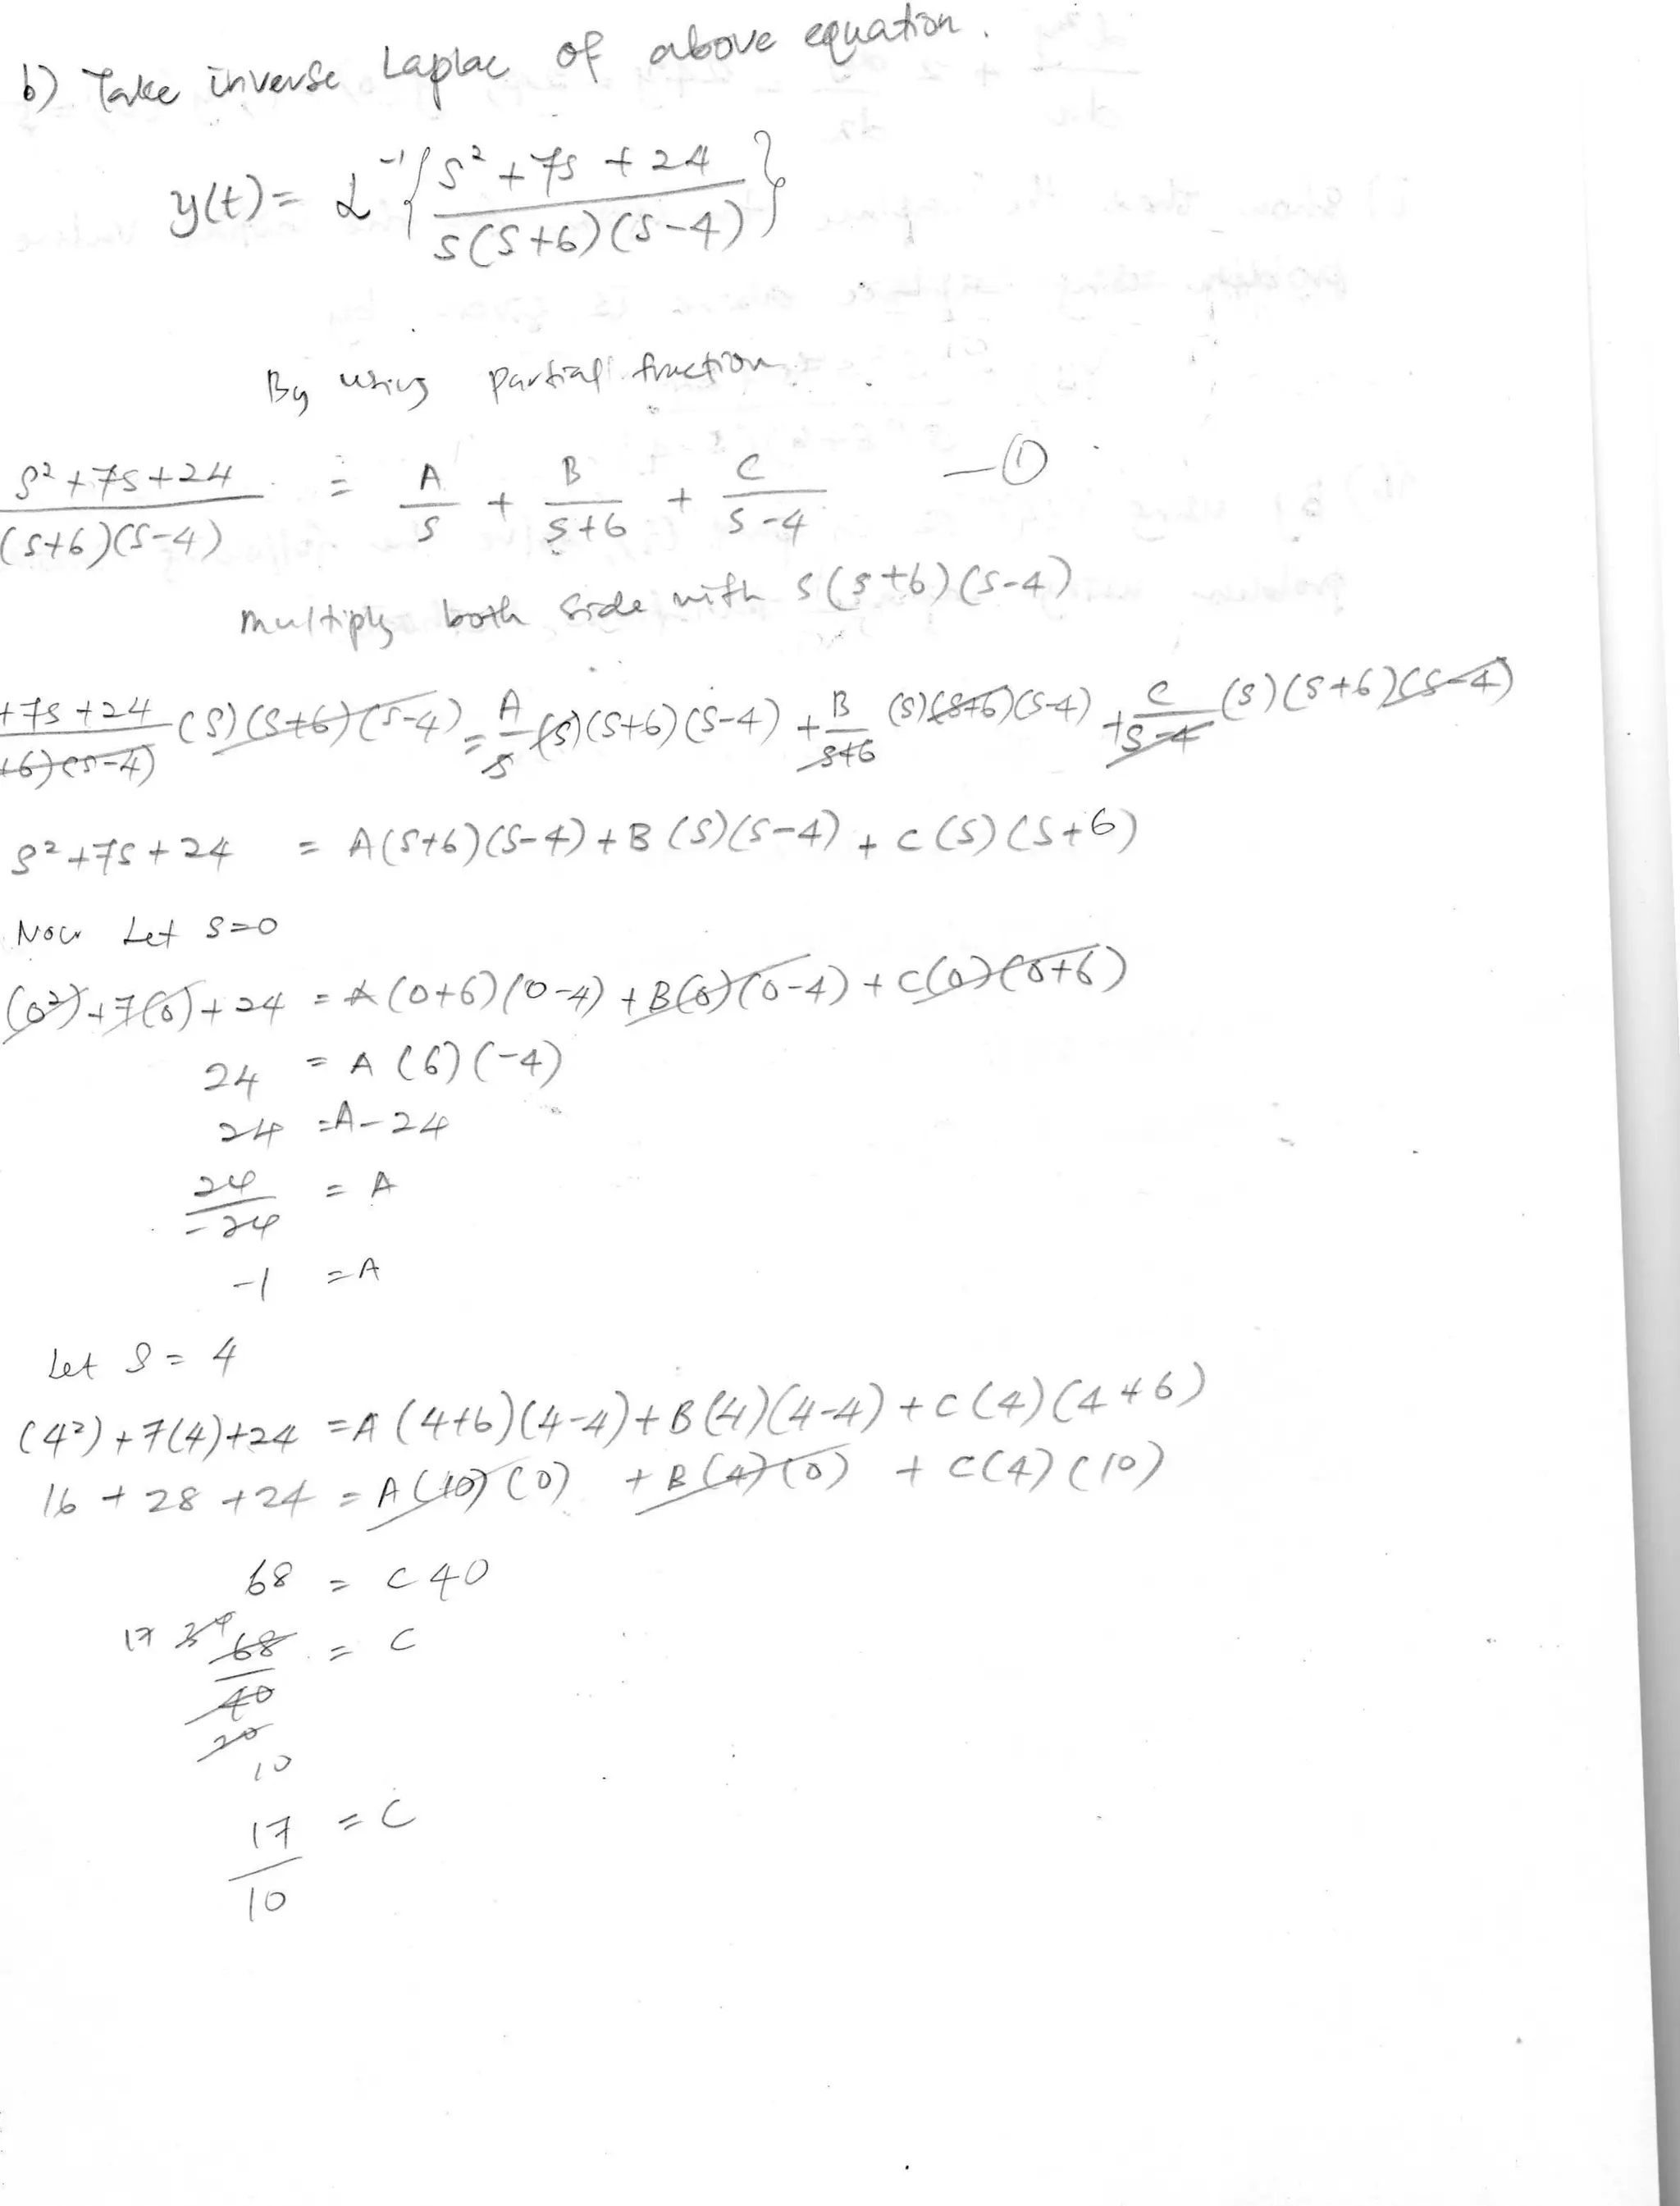 b) Take inverse Laplac of above equation.
y(t) = L⁻¹{ s²+7s+24 / s(s+6)(s-4) }
By using partial fraction
s²+7s+24 / (s+6)(s-4) = A/s + B/s+6 + C/s-4 —①
multiply both side with s(s+6)(s-4)
+7s+24 / +6)(s-4) (s)(s+6)(s-4) = A/s (s)(s+6)(s-4) + B/s+6 (s)(s+6)(s-4) + C/s-4 (s)(s+6)(s-4)
s²+7s+24 = A(s+6)(s-4) + B(s)(s-4) + C(s)(s+6)
Now Let s=0
(0²)+7(0)+24 = A(0+6)(0-4) + B(0)(0-4) + C(0)(0+6)
24 = A(6)(-4)
24 = A-24
24/-24 = A
-1 = A
Let s = 4
(4²)+7(4)+24 = A(4+6)(4-4) + B(4)(4-4) + C(4)(4+6)
16 + 28 + 24 = A(10)(0) + B(4)(0) + C(4)(10)
68 = C 40
17 34 68 = C
40
20
10
17/10 = C